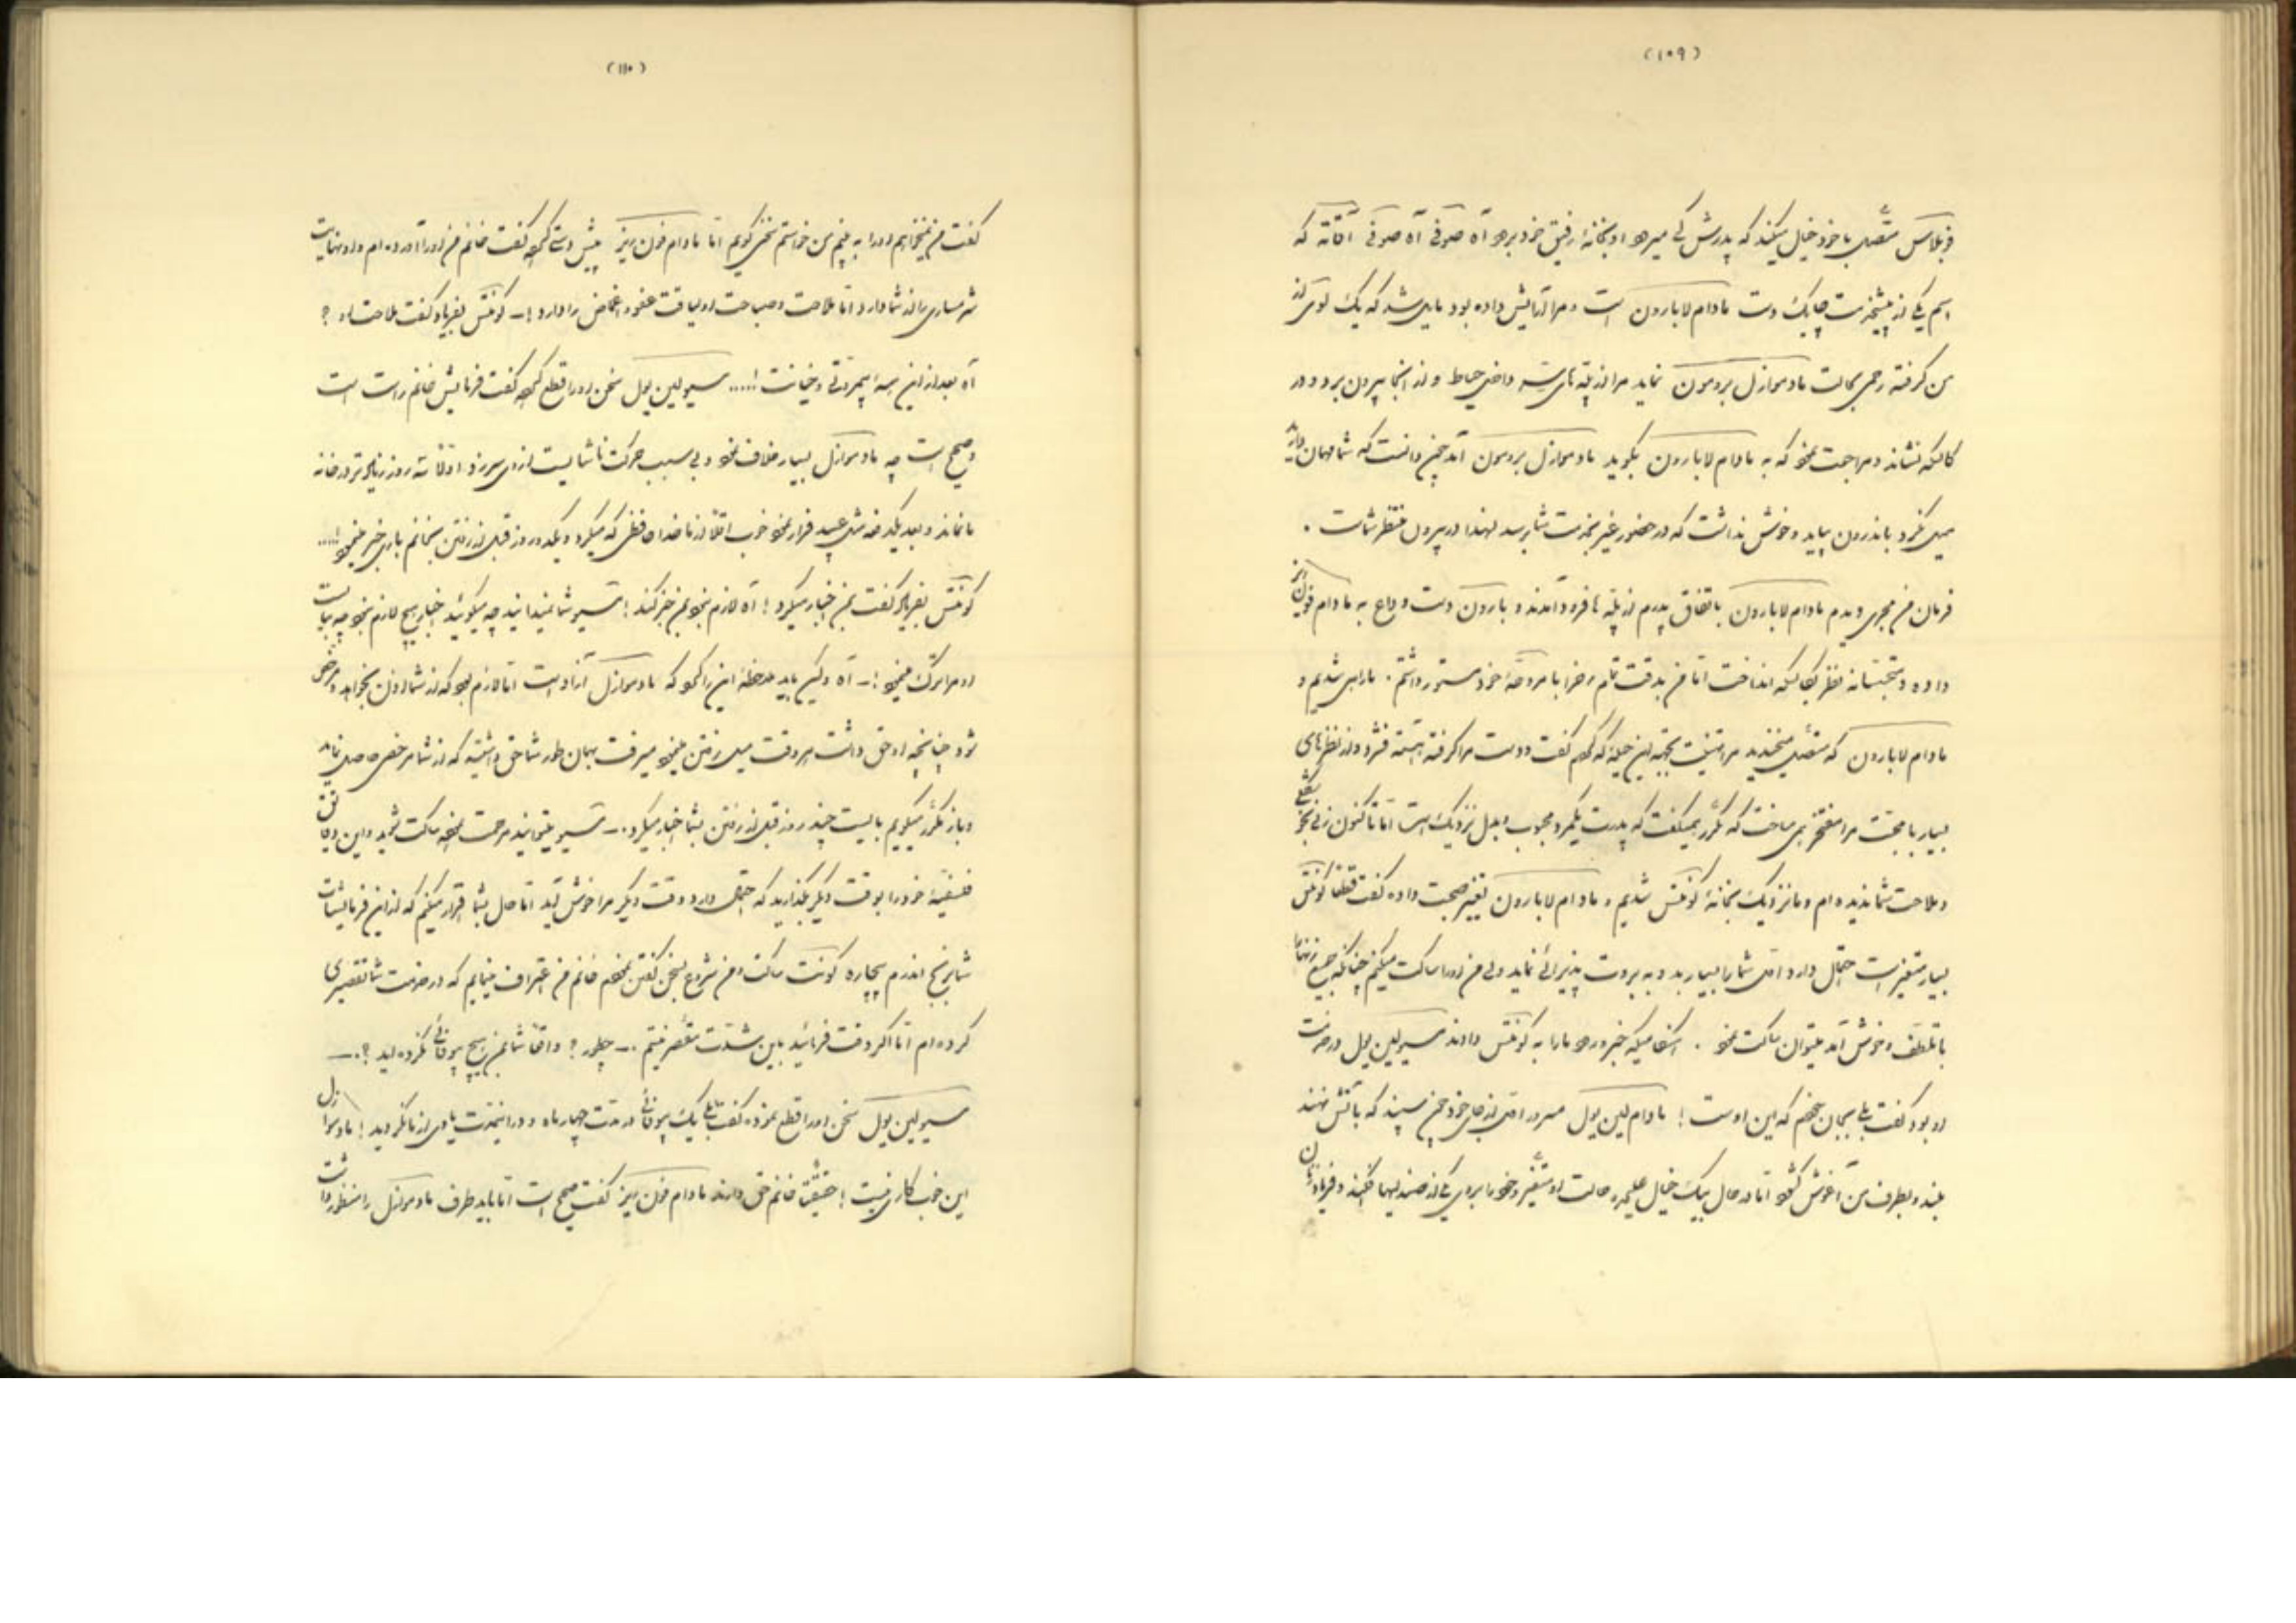 (۱۰۹)
متصل با خود خیال میکند که پدرش کی میرود او بخانهٔ رفیق خود برود آه صوفی آه صوفی آقاته که
اسم یکی از پیشخدمت چابک دست مادام لابارون است مرا آرایش داده بود مایل شد که یک
من گرفته رحمی بحالت مادموازل برومون نماید مرا از پله های داخل حیاط و از آنجا بیرون برد و در
کالسکه نشاند و مراجعت نمود که به مادام لابارون بگوید مادموازل برومون آمد چون دانست که شما مهمان دارید
میل نکرد باندرون بیاید و خوش نداشت که در حضور غیر بخدمت شما برسد لهذا در بیرون منتظر شماست .
فرمان من مجری و مادام لابارون باتفاق پدرم از پله ها فرود آمدند و بارون دست وداع به مادام
داده و متجسسانه نظر بکالسکه انداخت اما من بدقت تمام رخ را با مروحهٔ خود مستور داشتم . ما راهی شدیم و
مادام لابارون که متصل میخندید مرا تهنیت این حیله که کردم گفت و دست مرا گرفته آهسته فشرد و از نظرهای
بسیار با محبت مرا مفتخر همی ساخت که مکرر میگفت که پدرت یکمرد محبوب است اما تاکنون زنی بخوشگلی
و ملاحت شما ندیده ام و ما نزدیک بخانهٔ کونتس شدیم و مادام لابارون تغییر صحبت داده گفت قطعا کونتس
بسیار متغیر است احتمال دارد اول شما را بسیار بد و به برودت پذیرائی نماید ولی من او را ساکت میکنم چنانکه جمیع زنها
با تملق و خوش آمد میتوان ساکت نمود . هنگامیکه خبر ورود ما را به کونتس دادند مسیو لین یول در خدمت
او بود گفت بلی بجان خودم که این اوست ! مادام لین یول مسرور اول از جای خود که باتش
بلند و بطرف من آغوش گشود اما در حال یک خیال حالت او متغیر و خود را بروی یکی از صندلیها افکند و فریاد زنان
(۱۱۰)
گفت من نمیخواهم او را به بینم من خواستم سخنی گویم اما مادام فون ریز پیش دستی کرده گفت خانم من او را آورده ام و او نهایت
شرمساری را از شما دارد اما ملاحت و صباحت او لیاقت عفو و اغماض را دارد !– کونتس بفریاد گفت ملاحت او ؟
آه بعد از این همه بیمروتی و خیانت !..... مسیو لین یول سخن او را قطع کرده گفت فرمایش خانم راست است
و صحیح است چه مادموازل بسیار خلاف نمود و بی سبب حرکت ناشایست از او سر زد اولا سه روز زیادتر در خانه
ما نماند و بعد یکدفعه مثل صید فرار نمود خوب اقلا از ما خدا حافظی که میکرد و یکدو روز قبل از رفتن بخانم باری خبر مینمود !....
کونتس بفریاد گفت بمن اخبار میکرد ! آه لازم نبود بمن خبر کند ! مسیو شما نمیدانید چه میگوئید اخبار هیچ لازم نبود چه
او مرا ترک مینمود !– آه ولیکن باید ملاحظهٔ این را کرد که مادموازل آزاد است اما لازم بود که از شما اذن بخواهد و مرخص
شود چنانچه او حق داشت هر وقت میل رفتن مینمود میرفت بهمان طور شما حق داشتید که از شما مرخصی حاصل نماید
و باز مکرر میگویم بایست چند روز قبل از رفتن بشما اخبار میکرد .– مسیو میتوانید مرحمت نموده ساکت شوید و این دقایق
فلسفیهٔ خود را بوقت دیگر بگذارید که احتمال دارد وقت دیگر مرا خوش آید اما حال بشما اقرار میکنم که از این فرمایشات
شما برنج اندرم بیچاره کونت ساکت و من شروع بسخن گفتن نمودم خانم من اعتراف مینمایم که در خدمت شما تقصیری
کرده ام اما اگر دقت فرمائید باین شدت مقصر نیستم .– چطور ؟ واقعا شما بمن هیچ بیوفائی نکرده اید ؟.–
مسیو لین یول سخن او را قطع نموده گفت بلی یک بیوفائی در مدت چهار ماه و در اینمدت یادی از ما نکردید ! مادموازل
این خوب کاری نیست ! حقیقة خانم حق دارند مادام فون ریز گفت صحیح است اما باید طرف مادموازل را منظور داشت